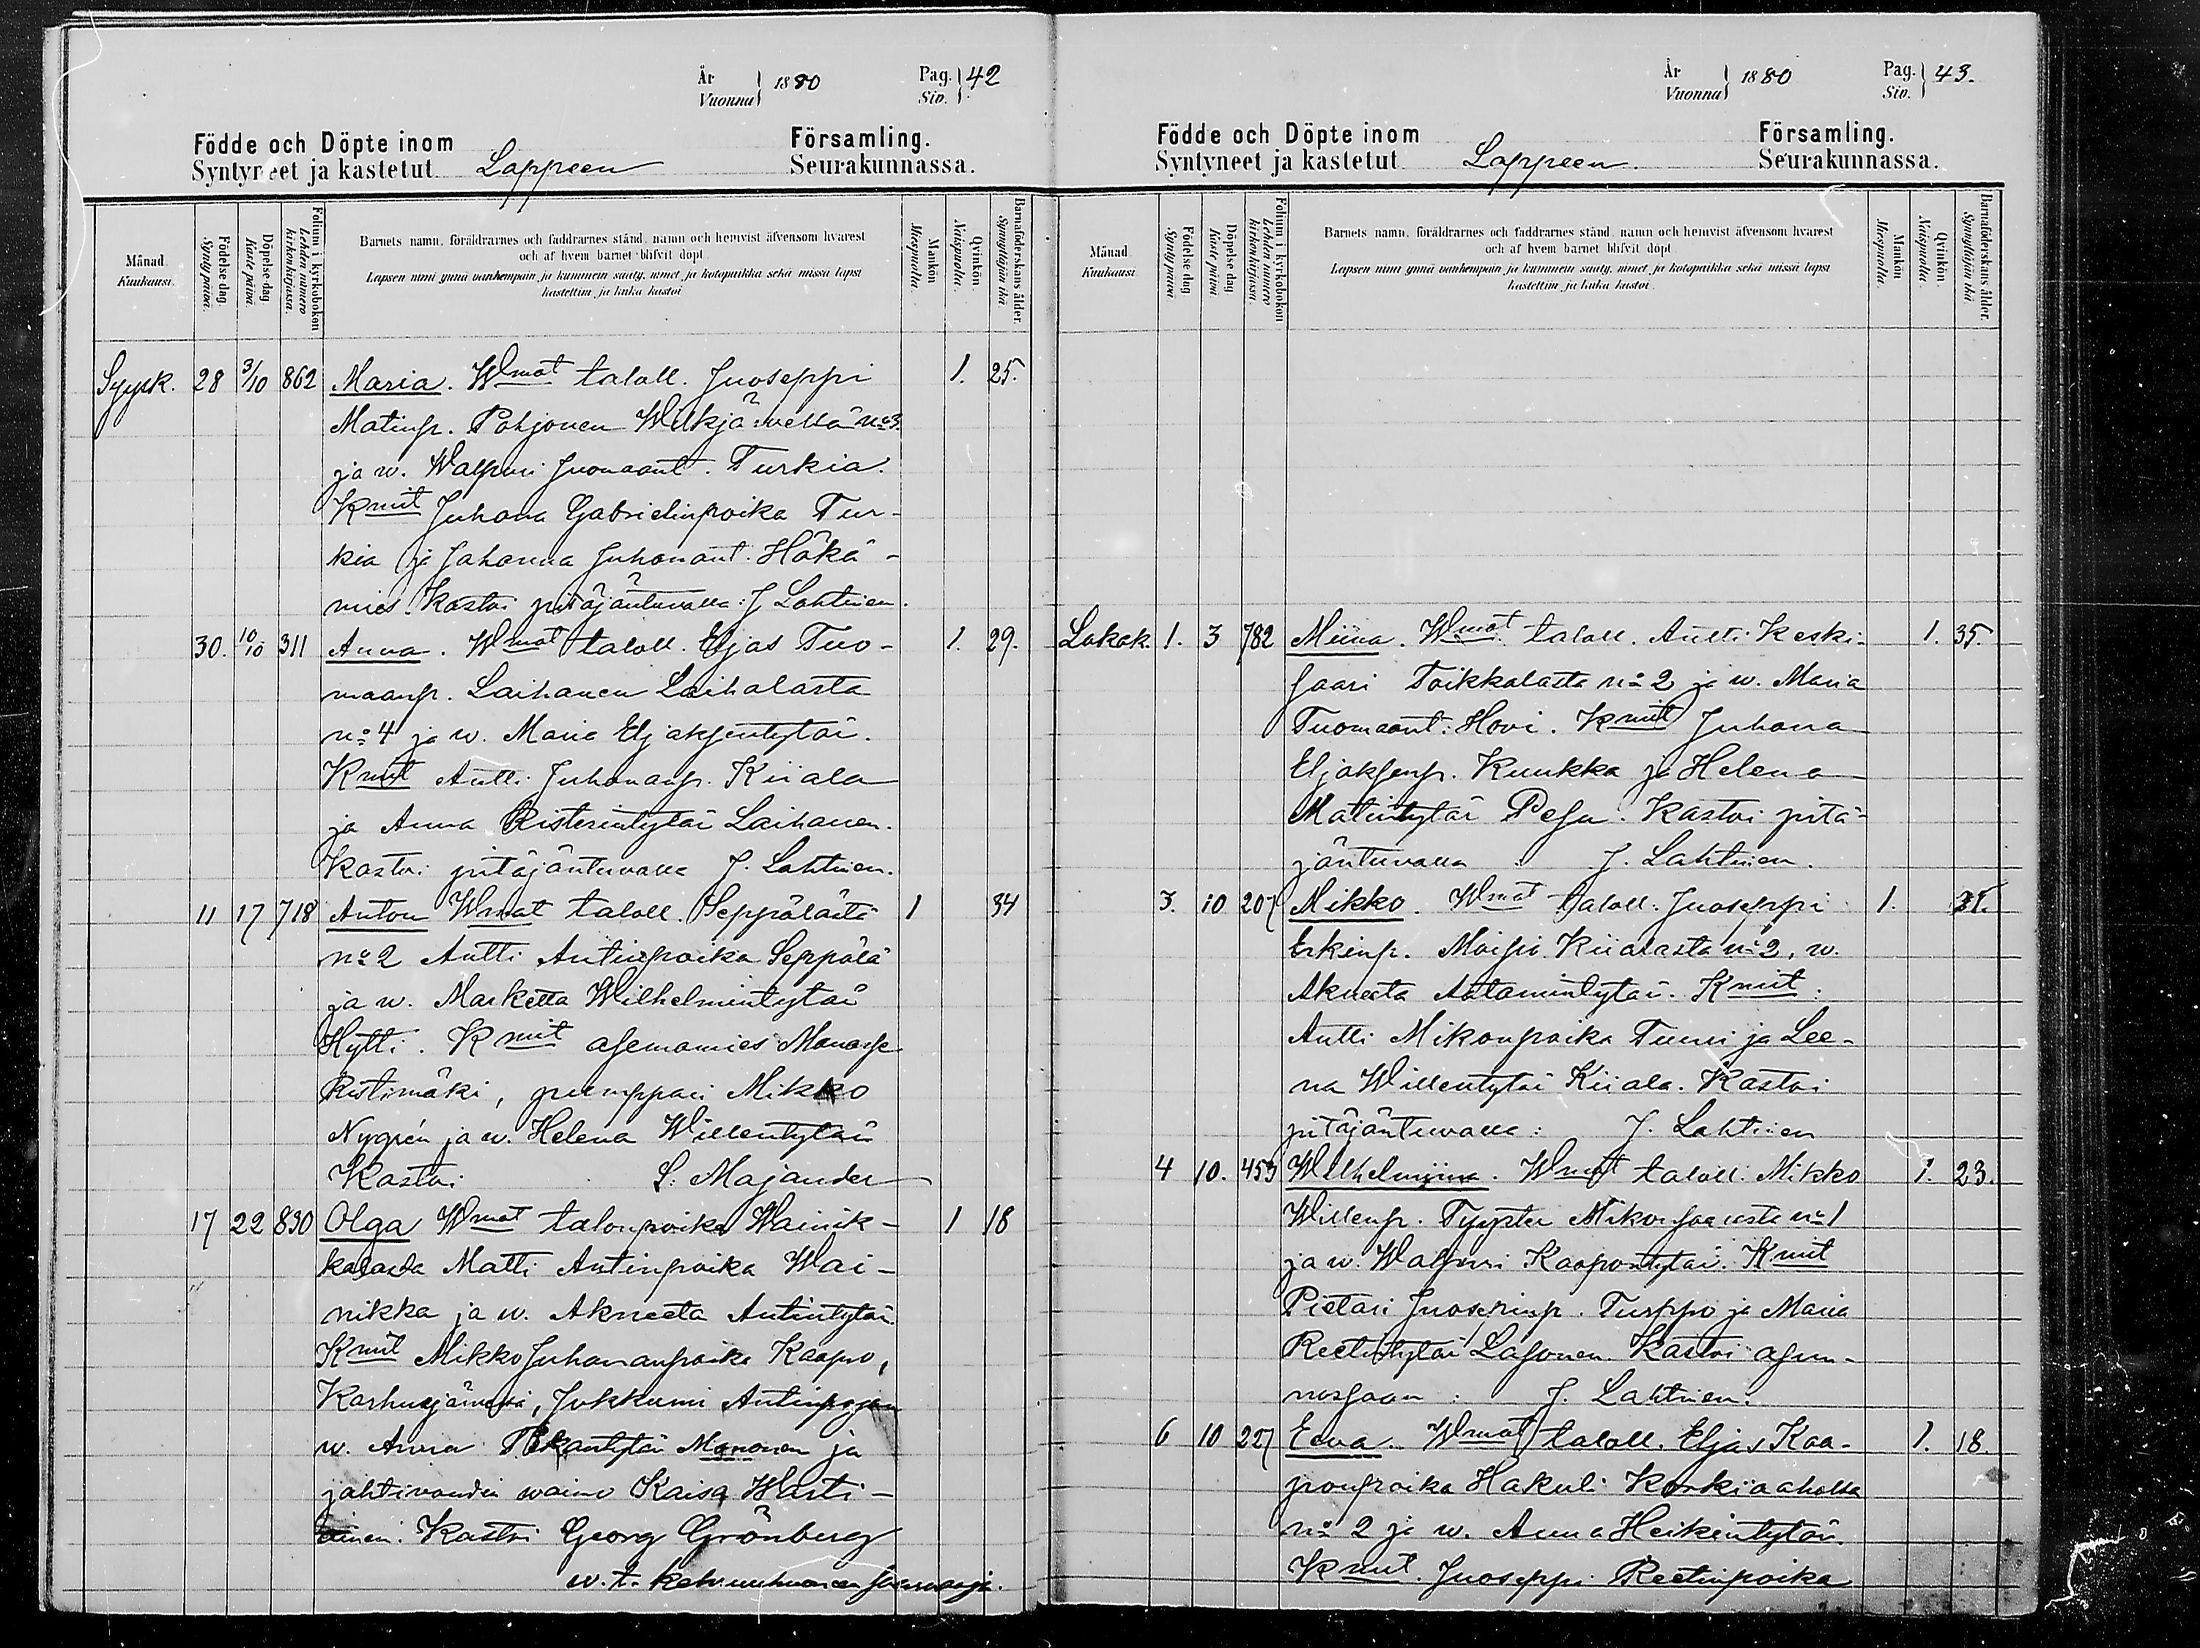 År
Vuonna 1880
Pag.
Siv. 42
Födde och Döpte inom Församling.
Syntyneet ja kastetut Lappeen Seurakunnassa.
Månad.
Kuukausi.
Födelse dag.
Synty päivä.
Döpelse dag
Kaste päivä.
Folium i kyrkoboken
Lehden numero
kirkonkirjassa.
Barnets namn, föräldrarnes och faddrarnes stånd, namn och hemvist äfvensom hvarest
och af hvem barnet blifvit döpt.
Lapsen nimi ynnä vanhempain ja kummein sääty, nimet ja kotopaikka sekä missä lapsi
kastettiin ja kuka kastoi.
Mankön
Miespuolta.
Qvinkön
Naispuolta.
Barnaföderskans ålder.
Synnyttäjän ikä
Syysk. 28 3/10 862 Maria. Wmat taloll. Juoseppi 1. 25.
Matinp. Pohjonen Wilkjärveltä no 3
ja w. Walpuri Juonaant. Turkia.
Kmit Juhana Gabrielinpoika Tur-
kia ja Johanna Juhonant. Häkä-
mies. Kastoi pitäjäntuvalla: J Lahtinen.
30. 10/10 311 Anna. Wmat taloll. Eljas Tuo- 1. 29.
maanp. Laihanen Laihalasta
no 4 ja w. Maria Eljaksentytär.
Kmit Antti Juhonanp. Kiiala
ja Anna Risterintytär Laihanen.
Kastoi pitäjäntuvalla J. Lahtinen.
11 17 718 Anton Wmat taloll. Seppälästä 1 34
no 2 Antti Antinpoika Seppälä
ja w. Marketta Wilhelmintytär
Hytti. Kmit asemamies Manasse
Ristimäki, pumppari Mikko
Nygrén ja w. Helena Willentytär
Kastoi S. Majander
17 22 830 Olga Wmat talonpoika Wainik- 1 18
kalasta Matti Antinpoika Wai-
nikka ja w. Akneeta Antintytär
Kmit Mikko Juhananpoika Kaapro,
Karhusjärveltä, Jukkumi Antinpojan
w. Anna Pekantytär Mononen ja
jahtivoudin waimo Kaisa Wasti-
ainen. Kastoi Georg Grönberg
w. t.
År
Vuonna 1880
Pag.
Siv. 43.
Födde och Döpte inom Församling.
Syntyneet ja kastetut Lappeen. Seurakunnassa.
Månad
Kuukausi
Födelse dag
Synty päivä
Döpelse dag
Kaste päivä
Folium i kyrkoboken
Lehden numero
kirkonkirjassa.
Barnets namn, föräldrarnes och faddrarnes stånd, namn och hemvist äfvensom hvarest
och af hvem barnet blifvit döpt.
Lapsen nimi ynnä vanhempain ja kummein sääty, nimet ja kotopaikka sekä missä lapsi
kastettiin ja kuka kastoi.
Mankön
Miespuolta.
Qvinkön
Naispuolta.
Barnaföderskans ålder.
Synnyttäjän ikä
Lokak. 1. 3 782 Miina. Wmat taloll. Antti Keski- 1. 35.
saari Toikkalasta no 2 ja w. Maria
Tuomaant. Hovi. Kmit Juhana
Eljaksenp. Kuukka ja Helena
Matintytär Pesu. Kastoi pitä-
jäntuvalla: J. Lahtinen.
3. 10 207 Mikko. Wmat taloll. Juoseppi 1.
Erkinp. Moisio Kiialasta no 2, w.
Akneeta Aatamintytär. Kmit:
Antti Mikonpoika Tuuri ja Lee-
na Willentytär Kiiala. Kastoi
pitäjäntuvalla: J. Lahtinen
4 10. 453 Wilhelmiina. Wmat taloll. Mikko 1. 23.
Willenp. Tyyster Mikonsaaresta no 1
ja w. Walpuri Kaapontytär. Kmit
Pietari Juosepinp. Turppo ja Maria
Reetintytär Lasonen. Kastoi asun-
nossaan: J. Lahtinen.
6 10 227 Eeva. Wmat taloll. Eljas Kaa- 1. 18.
ponpoika Hakuli Korkiaaholta
no 2 ja w. Anna Heikintytär.
Kmit. Juoseppi Reetinpoika